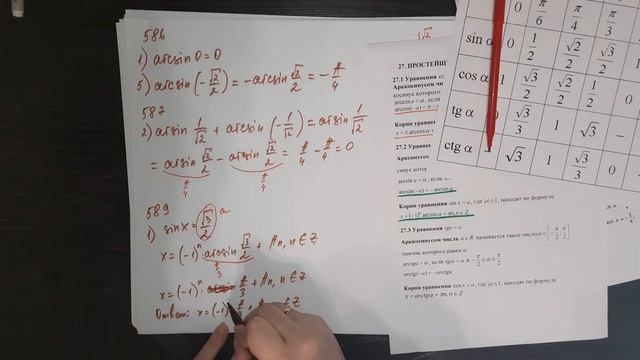 586
1) arcsin 0 = 0
5) arcsin (-√2/2) = -arcsin √2/2 = -π/4
587
2) arcsin 1/√2 + arcsin (-1/√2) = arcsin 1/√2
= arcsin √2/2 - arcsin √2/2 = π/4 - π/4 = 0
π/4 π/4
589
1) sin x = √3/2 a
x = (-1)ⁿ arcsin √3/2 + πn, n ∈ Z
π/3
x = (-1)ⁿ · π/3 + πn, n ∈ Z
Ответ: x = (-1)
√2
27. ПРОСТЕЙШ
27.1 Уравнения co
Арккосинусом
косинус которого
arccos a = α, если
arccos(-a) = π -
Корни уравнения
x = ± arccos a +
27.2 Уравнения
Арксинусом
синус которого
arcsin a = α, если
arcsin(-a) = -arcsin a
Корни уравнения sin x = a, где |a| ≤ 1, находят по формуле
x = (-1)ⁿ arcsin a + πn, n ∈ Z
27.3 Уравнения tgx = a
Арктангенсом числа a ∈ R называется такое число α ∈ [-π/2; π/2],
тангенс которого равен a:
arctg a = α, если tg α = a и -π/2 ≤ α ≤ π/2
arctg(-a) = -arctg a
Корни уравнения cos x = a, где |a| ≤ 1, находят по формуле
x = arctg a + πn, n ∈ Z
0 π/6 π/4 π/3
sin α 0 1/2 √2/2 √3/2
cos α 1 √3/2 √2/2 1/2 0
tg α 0 √3/3 1 √3 –
ctg α – √3 1 √3/3 0